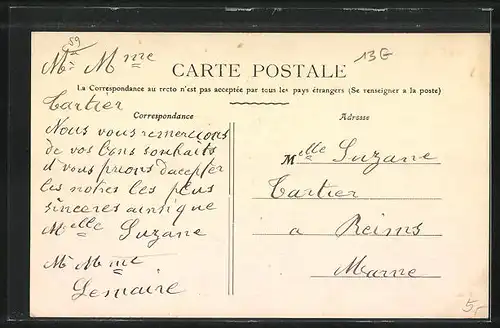 59
13G
Mr Mme
CARTE POSTALE
La Correspondance au recto n'est pas acceptée par tous les pays étrangers (Se renseigner a la poste)
Tartier
Correspondance
Nous vous remercions
de vos bons souhaits
d vous prions d'accepter
les notres les plus
sinceres ainsi que
Melle Suzane
Mr Mme
Lemaire
Adresse
Melle Suzane
Tartier
a Reims
Marne
5,-